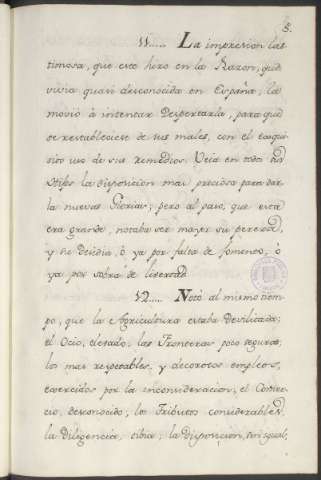 5.
11..... La impresion las-
timosa, que esto hizo en la Razon, que
vivia quasi desconocida en España, la
movió à intentar Despertarla, para que
se restableciese de sus males, con el exqui-
sito uso de sus remedios. Veia en todos sus
la disposicion mas preciosa para dar
la nuevas Glorias; pero al paso, que esta
era grande, notaba ser mayor su pereza,
y ò ya por falta de fomento, ò
ya por sobra de libertad
12..... Notó al mismo tiem-
po, que la Agricultura estaba Devilitada;
el Ocio, elevado; las Fronteras poco seguras;
los mas respetables, y decorosos empleos,
exercidos por la inconsideracion; el Comer-
cio, desconocido; los Tributos considerables,
la Diligencia, tibia; la Disposicion, sin igual,